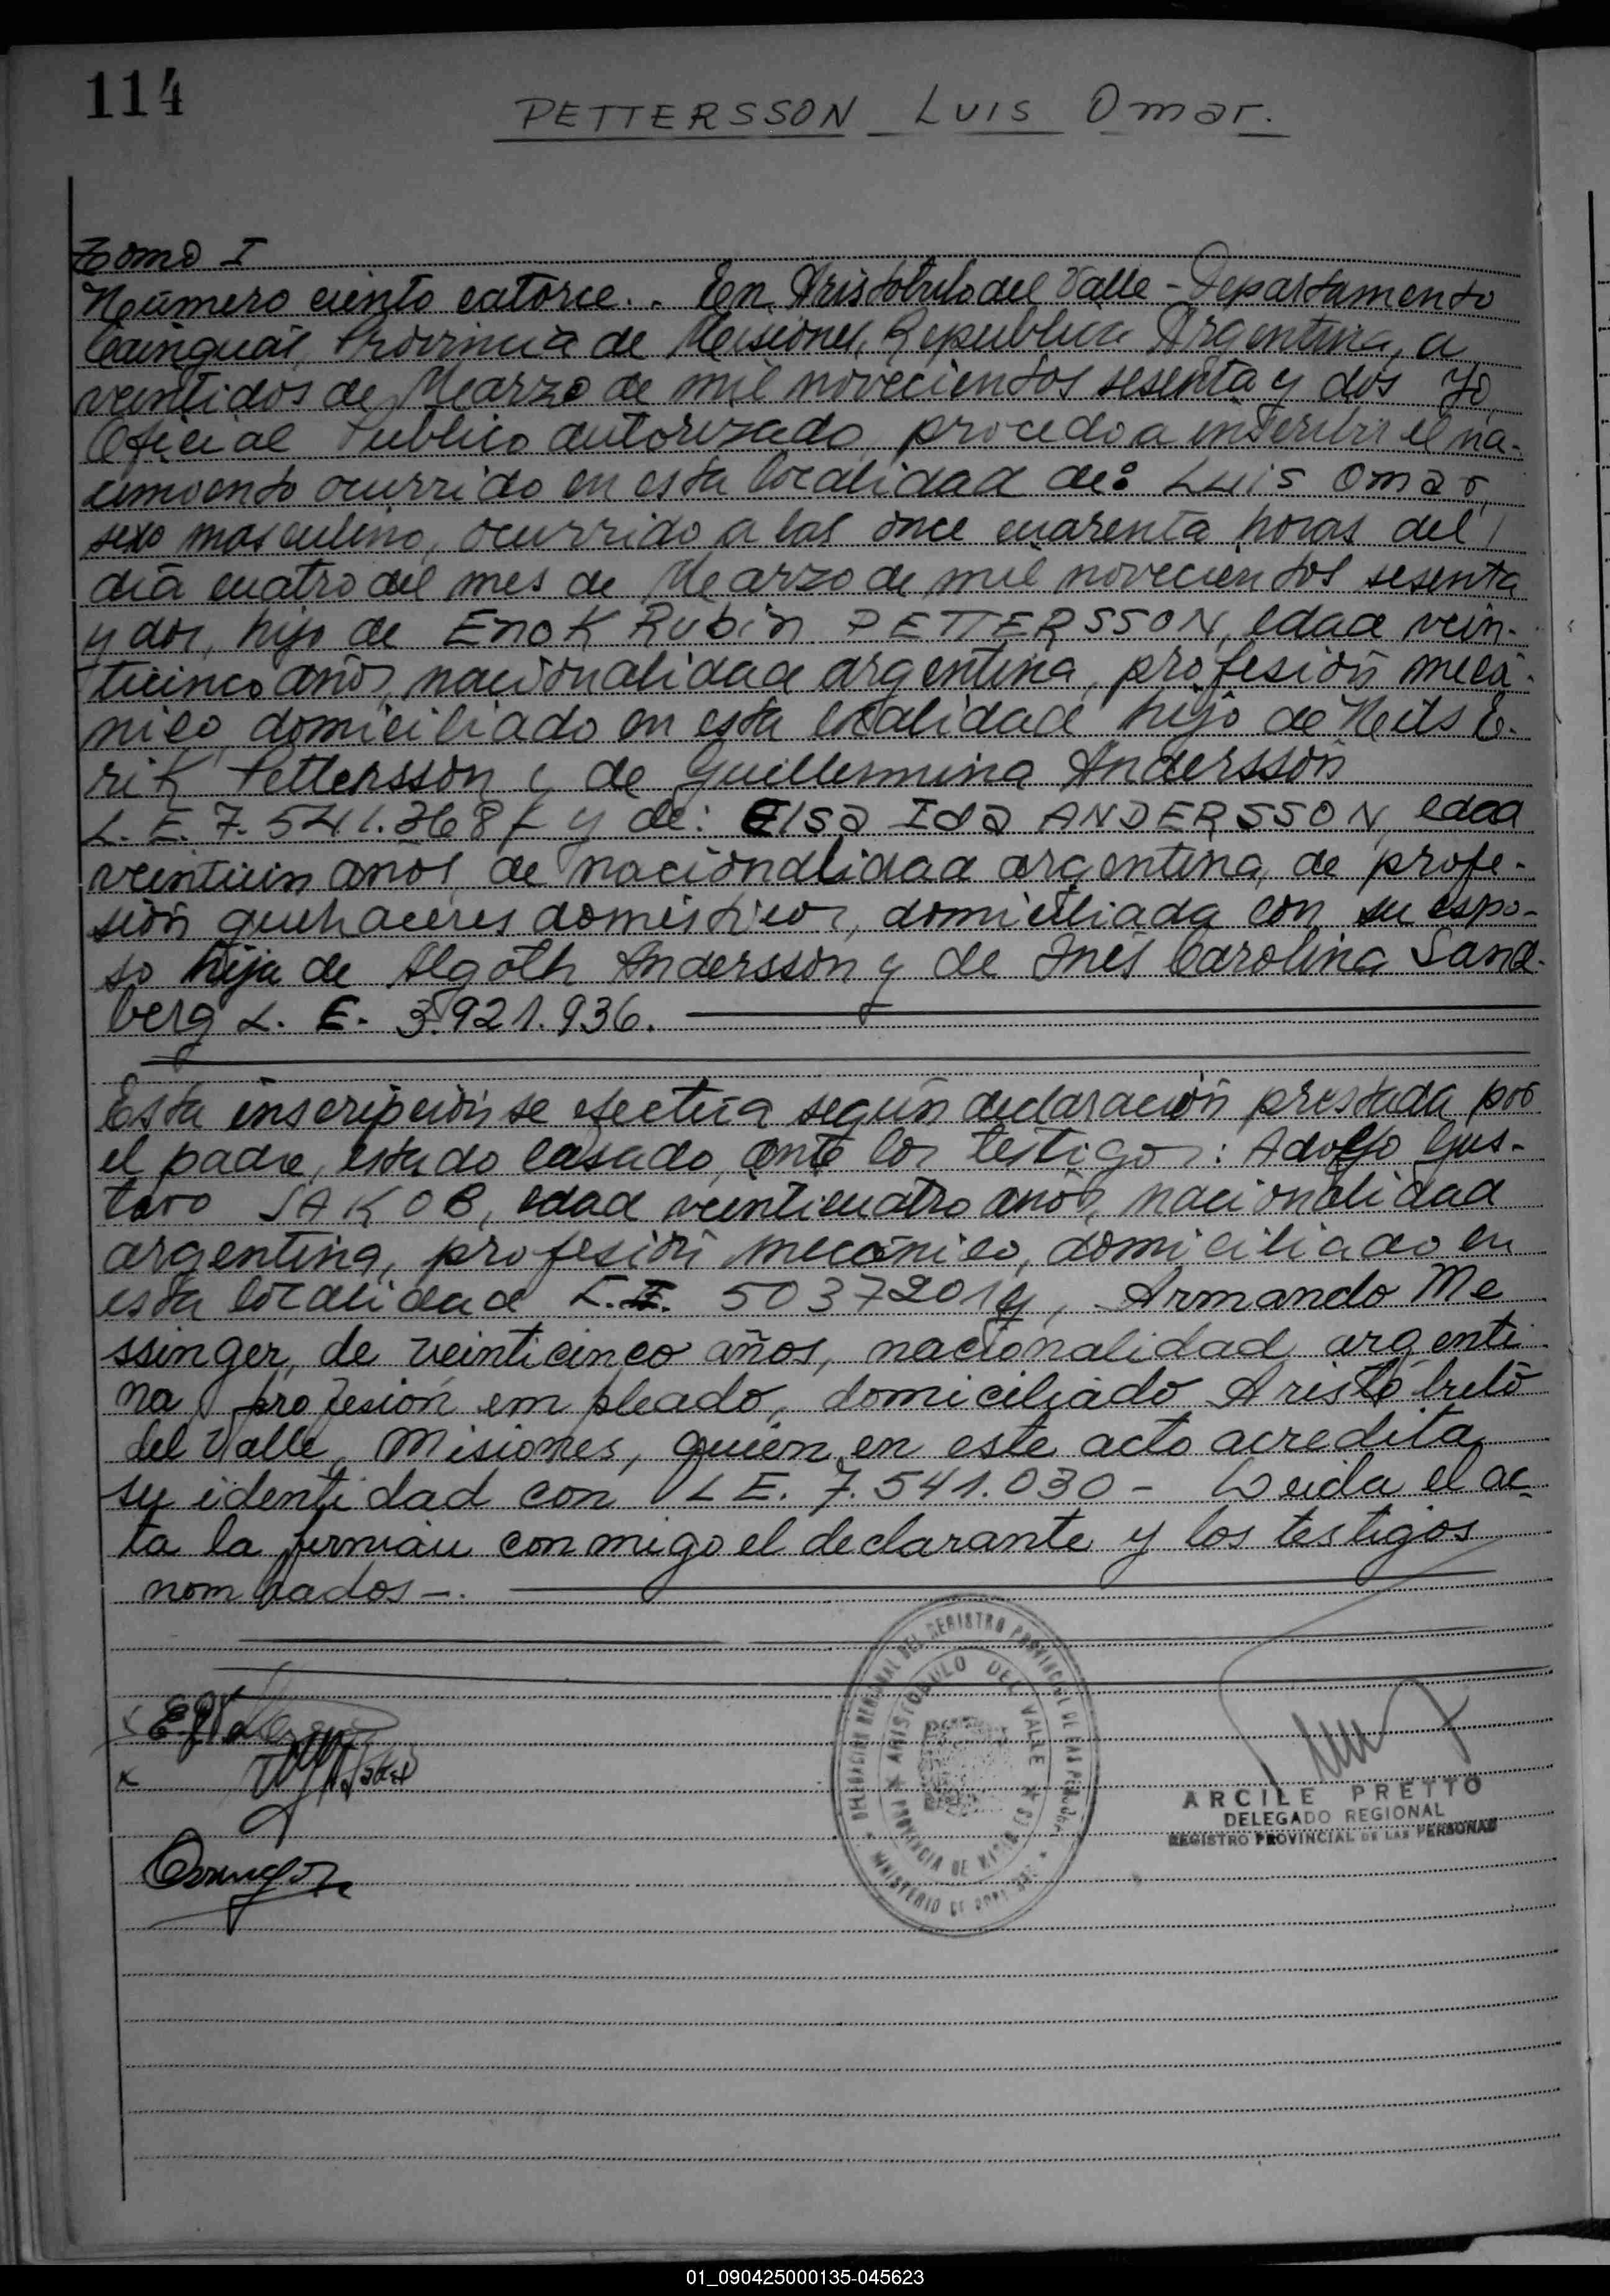 114
PETTERSSON LUIS Omar.
Tomo I
Número ciento catorce.. En Aristobulo del Valle - Departamento
Cainguás, Provincia de Misiones, Republica Argentina, a
veintidos de Marzo de mil novecientos sesenta y dos Yo,
Oficial Publico autorizado, procedo a inscribir el na-
cimiento ocurrido en esta localidad de: Luis Omar,
sexo masculino, ocurrido a las once cuarenta horas del
día cuatro del mes de Marzo de mil novecientos sesenta
y dos, hijo de Enok Rubin PETTERSSON, edad vein-
ticinco años, nacionalidad argentina, profesión mecá-
nico, domiciliado en esta localidad hijo de Neils E-
rik Pettersson y de Guillermina Andersson
L. E. 7.541.368 y de: Elsa Ida ANDERSSON, edad
veintiun años de nacionalidad argentina, de profe-
sión quehaceres domésticos, domiciliada con su espo-
so hija de Algoth Andersson y de Inés Carolina Sand-
berg L. E. 3.921.936.
Esta inscripción se efectúa según declaración prestada por
el padre, estado casado, ante los testigos: Adolfo Gus-
tavo JAKOB, edad veinticuatro años, nacionalidad
argentina, profesión mecánico, domiciliado en
esta localidad L.E. 5037201 y, Armando Me
ssinger, de veinticinco años, nacionalidad argenti
na, profesión empleado, domiciliado Aristobulo
del Valle, Misiones, quién en este acto acredita
su identidad con L E. 7.541.030 - Leida el ac-
ta la firman conmigo el declarante y los testigos
nombrados-.
DELEGACION REGIONAL DEL REGISTRO PROVINCIAL DE LAS PERSONAS
ARISTOBULO DEL VALLE
PROVINCIA DE MISIONES
MINISTERIO DE
ARCILE PRETTO
DELEGADO REGIONAL
REGISTRO PROVINCIAL DE LAS PERSONAS
01_090425000135-045623